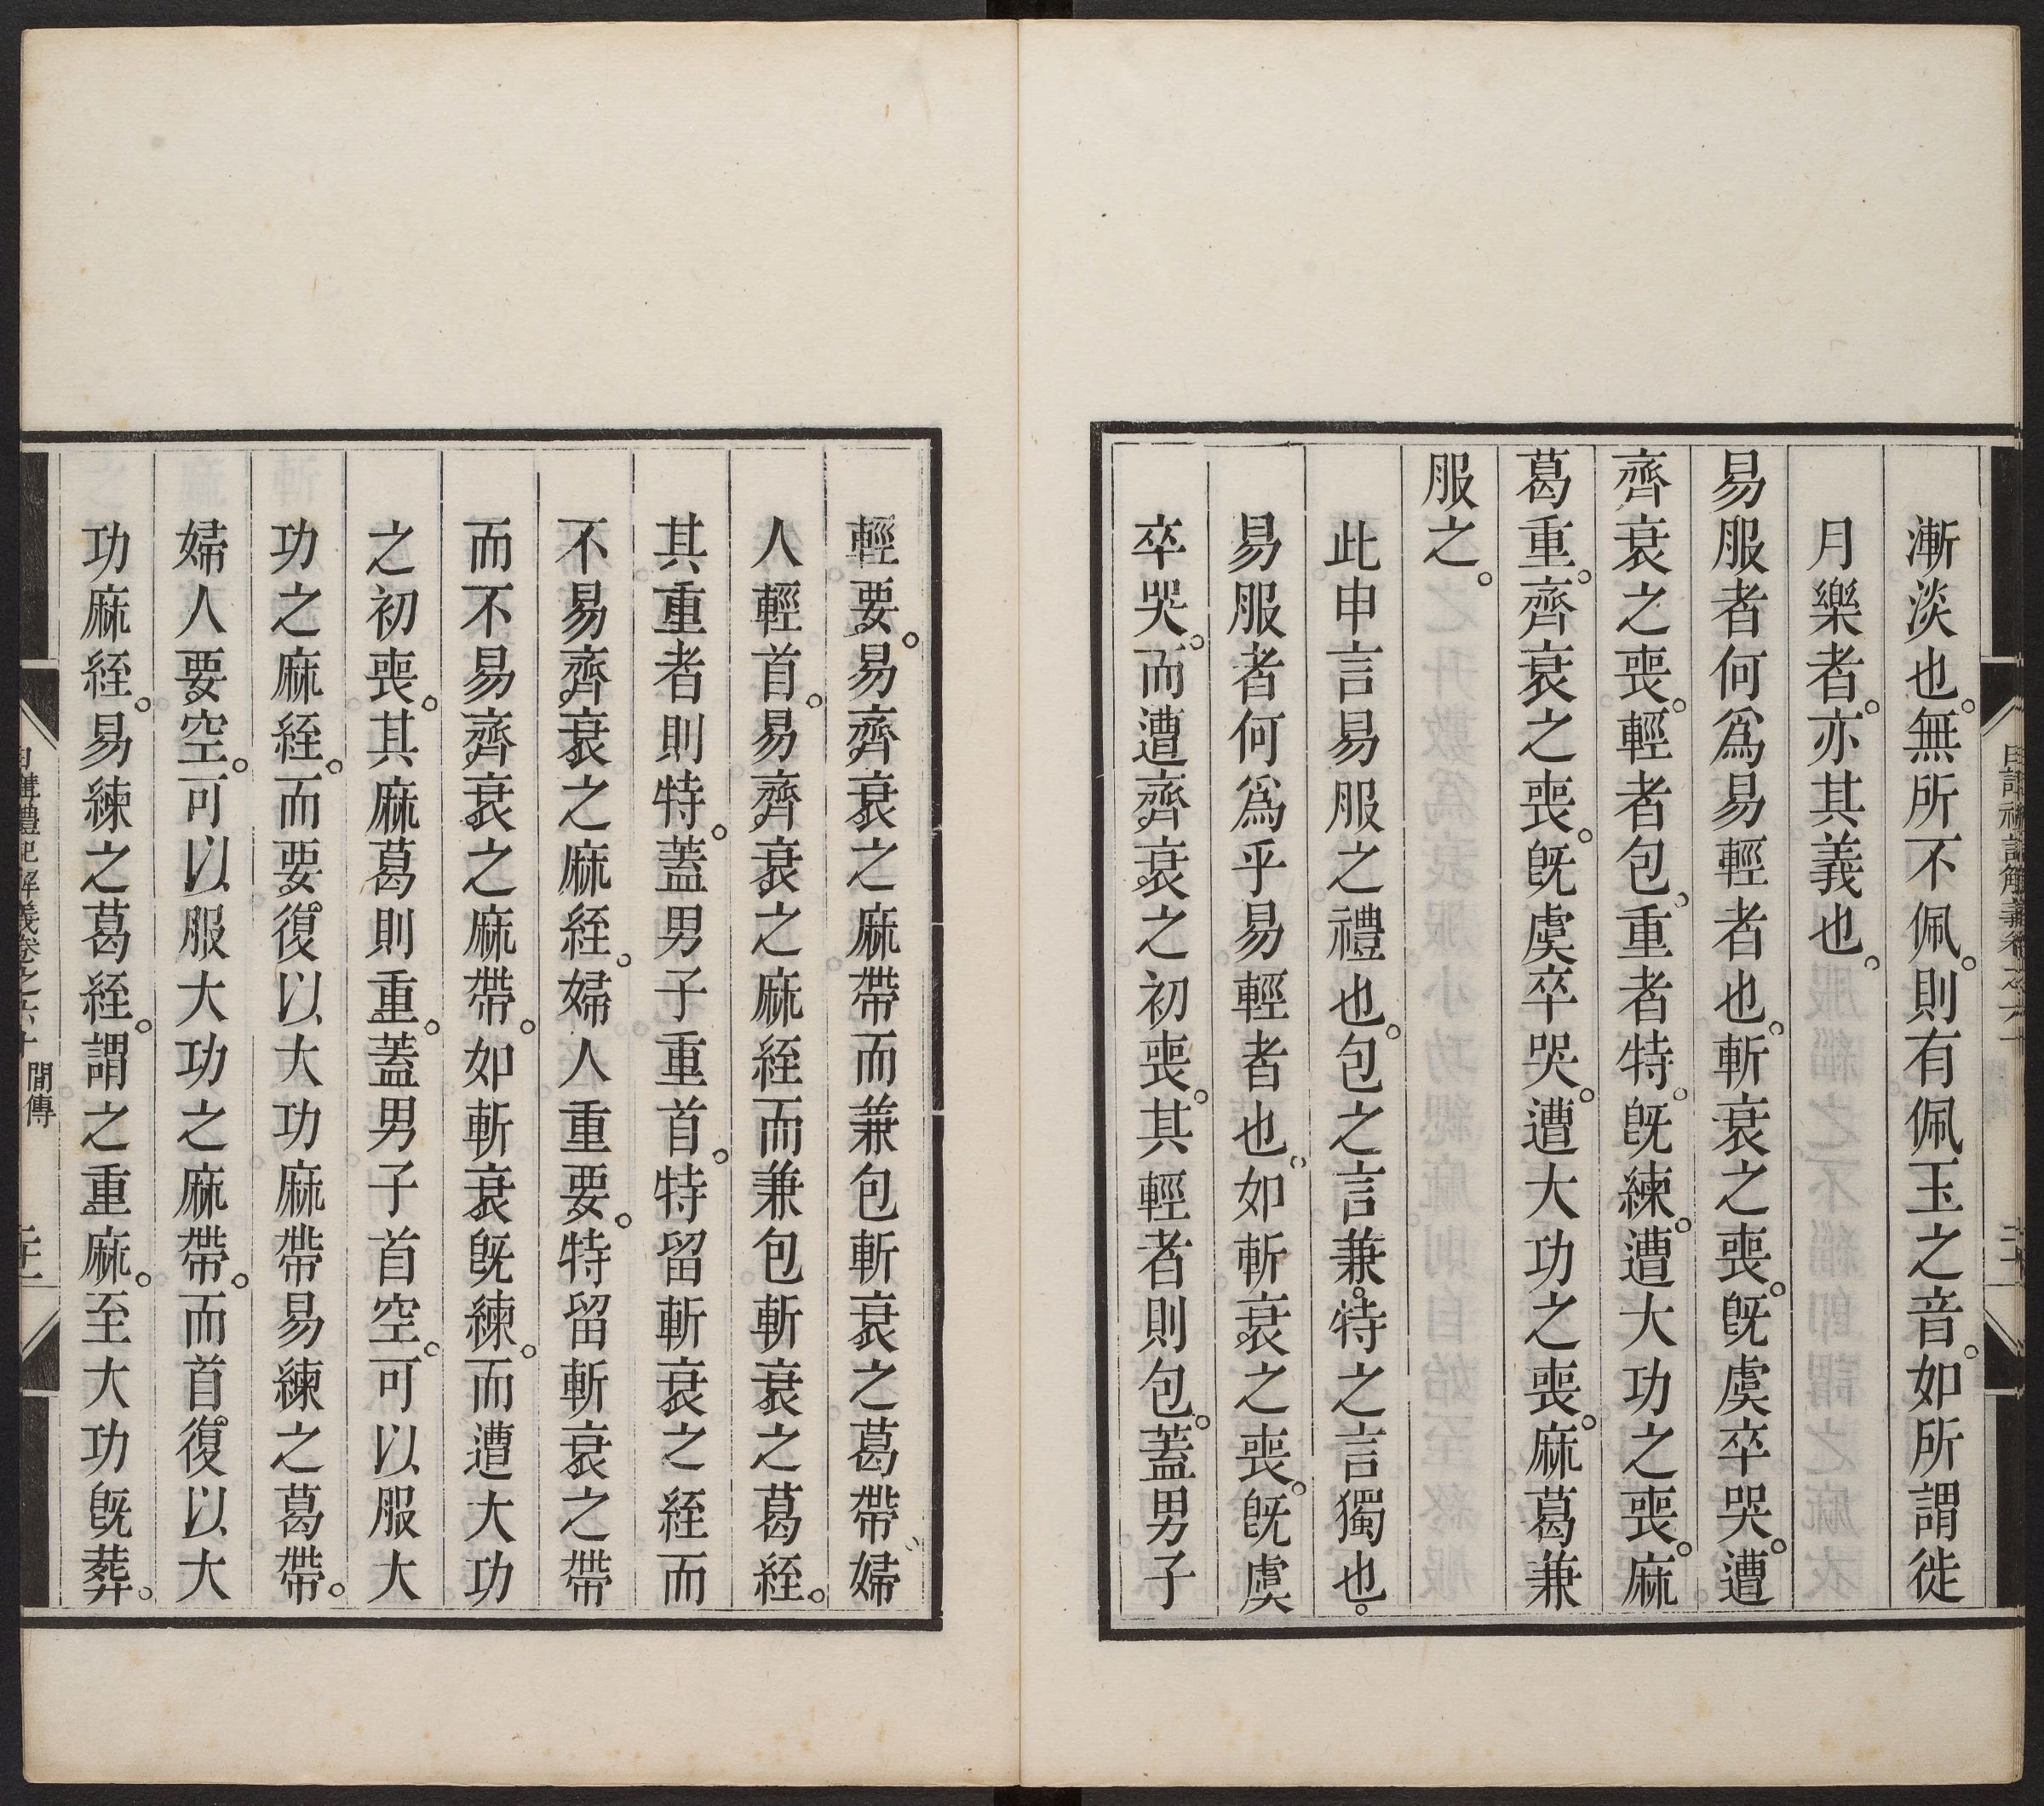 漸淡也。無所不佩。則有佩玉之音。如所謂徙
月樂者。亦其義也。
易服者何爲易輕者也。斬衰之喪。旣虞卒哭。遭
齊衰之喪。輕者包、重者特。旣練。遭大功之喪。麻
葛重。齊衰之喪。旣虞卒哭。遭大功之喪。麻葛兼
服之。
此申言易服之禮也。包之言兼。特之言獨也。
易服者何爲乎易輕者也。如斬衰之喪。旣虞
卒哭。而遭齊衰之初喪。其輕者則包。蓋男子
輕要。易齊衰之麻帶而兼包斬衰之葛帶、婦
人輕首。易齊衰之麻絰而兼包斬衰之葛絰。
其重者則特。蓋男子重首。特留斬衰之絰而
不易齊衰之麻絰。婦人重要。特留斬衰之帶
而不易齊衰之麻帶。如斬衰旣練。而遭大功
之初喪。其麻葛則重。蓋男子首空。可以服大
功之麻絰。而要復以大功麻帶易練之葛帶。
婦人要空。可以服大功之麻帶。而首復以大
功麻絰。易練之葛絰。謂之重麻。至大功旣葬。
日講禮記解義卷之六十 間傳 二十一